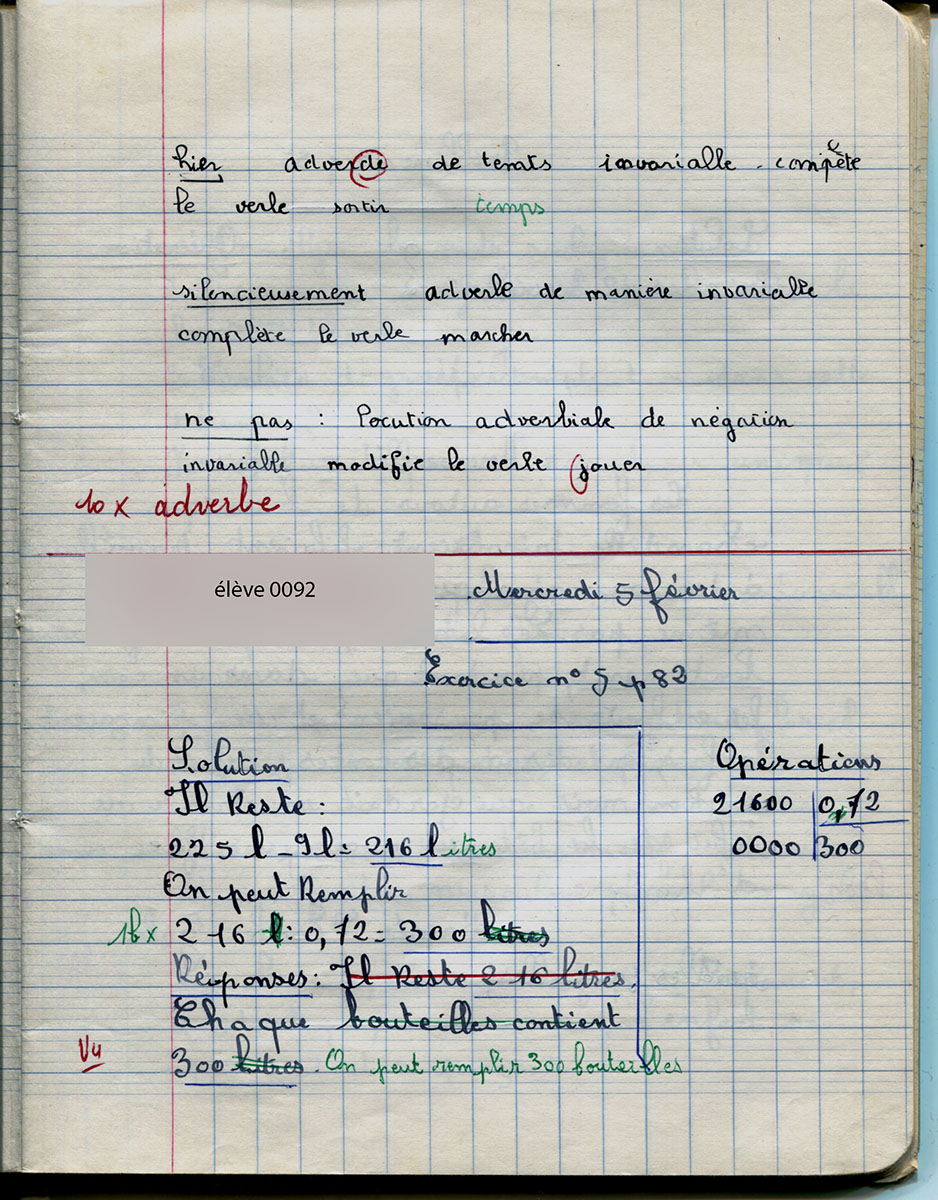 hier adverde de temts invarialle. compète
le verle sortir temps
silencieusement adverle de manière invarialle
complète le verle marcher
ne pas : locution adverbiale de négation
invariable modifie le verle jouer
10 x adverbe
élève 0092
Mercredi 5 février
Exercice n° 5 p 82
Solution
Il Reste :
225 l - 9 l = 216 l itres
On peut Remplir
1b x 216 l : 0,72 = 300 litres
Réponses : Il Reste 216 litres.
Chaque bouteilles contient
Vu
300 litres. On peut remplir 300 bouteilles
Opérations
21600 0,72
0000 300